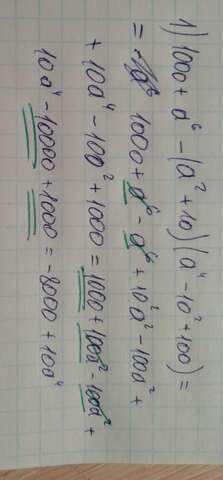 1) 1000 + a⁶ - (a² + 10)(a⁴ - 10² + 100) =
= 1000 + a⁶ - a⁶ + 10²a² - 100a² +
+ 10a⁴ - 100² + 1000 = 1000 + 100a² - 100a² +
10a⁴ - 10000 + 1000 = -8000 + 10a⁴